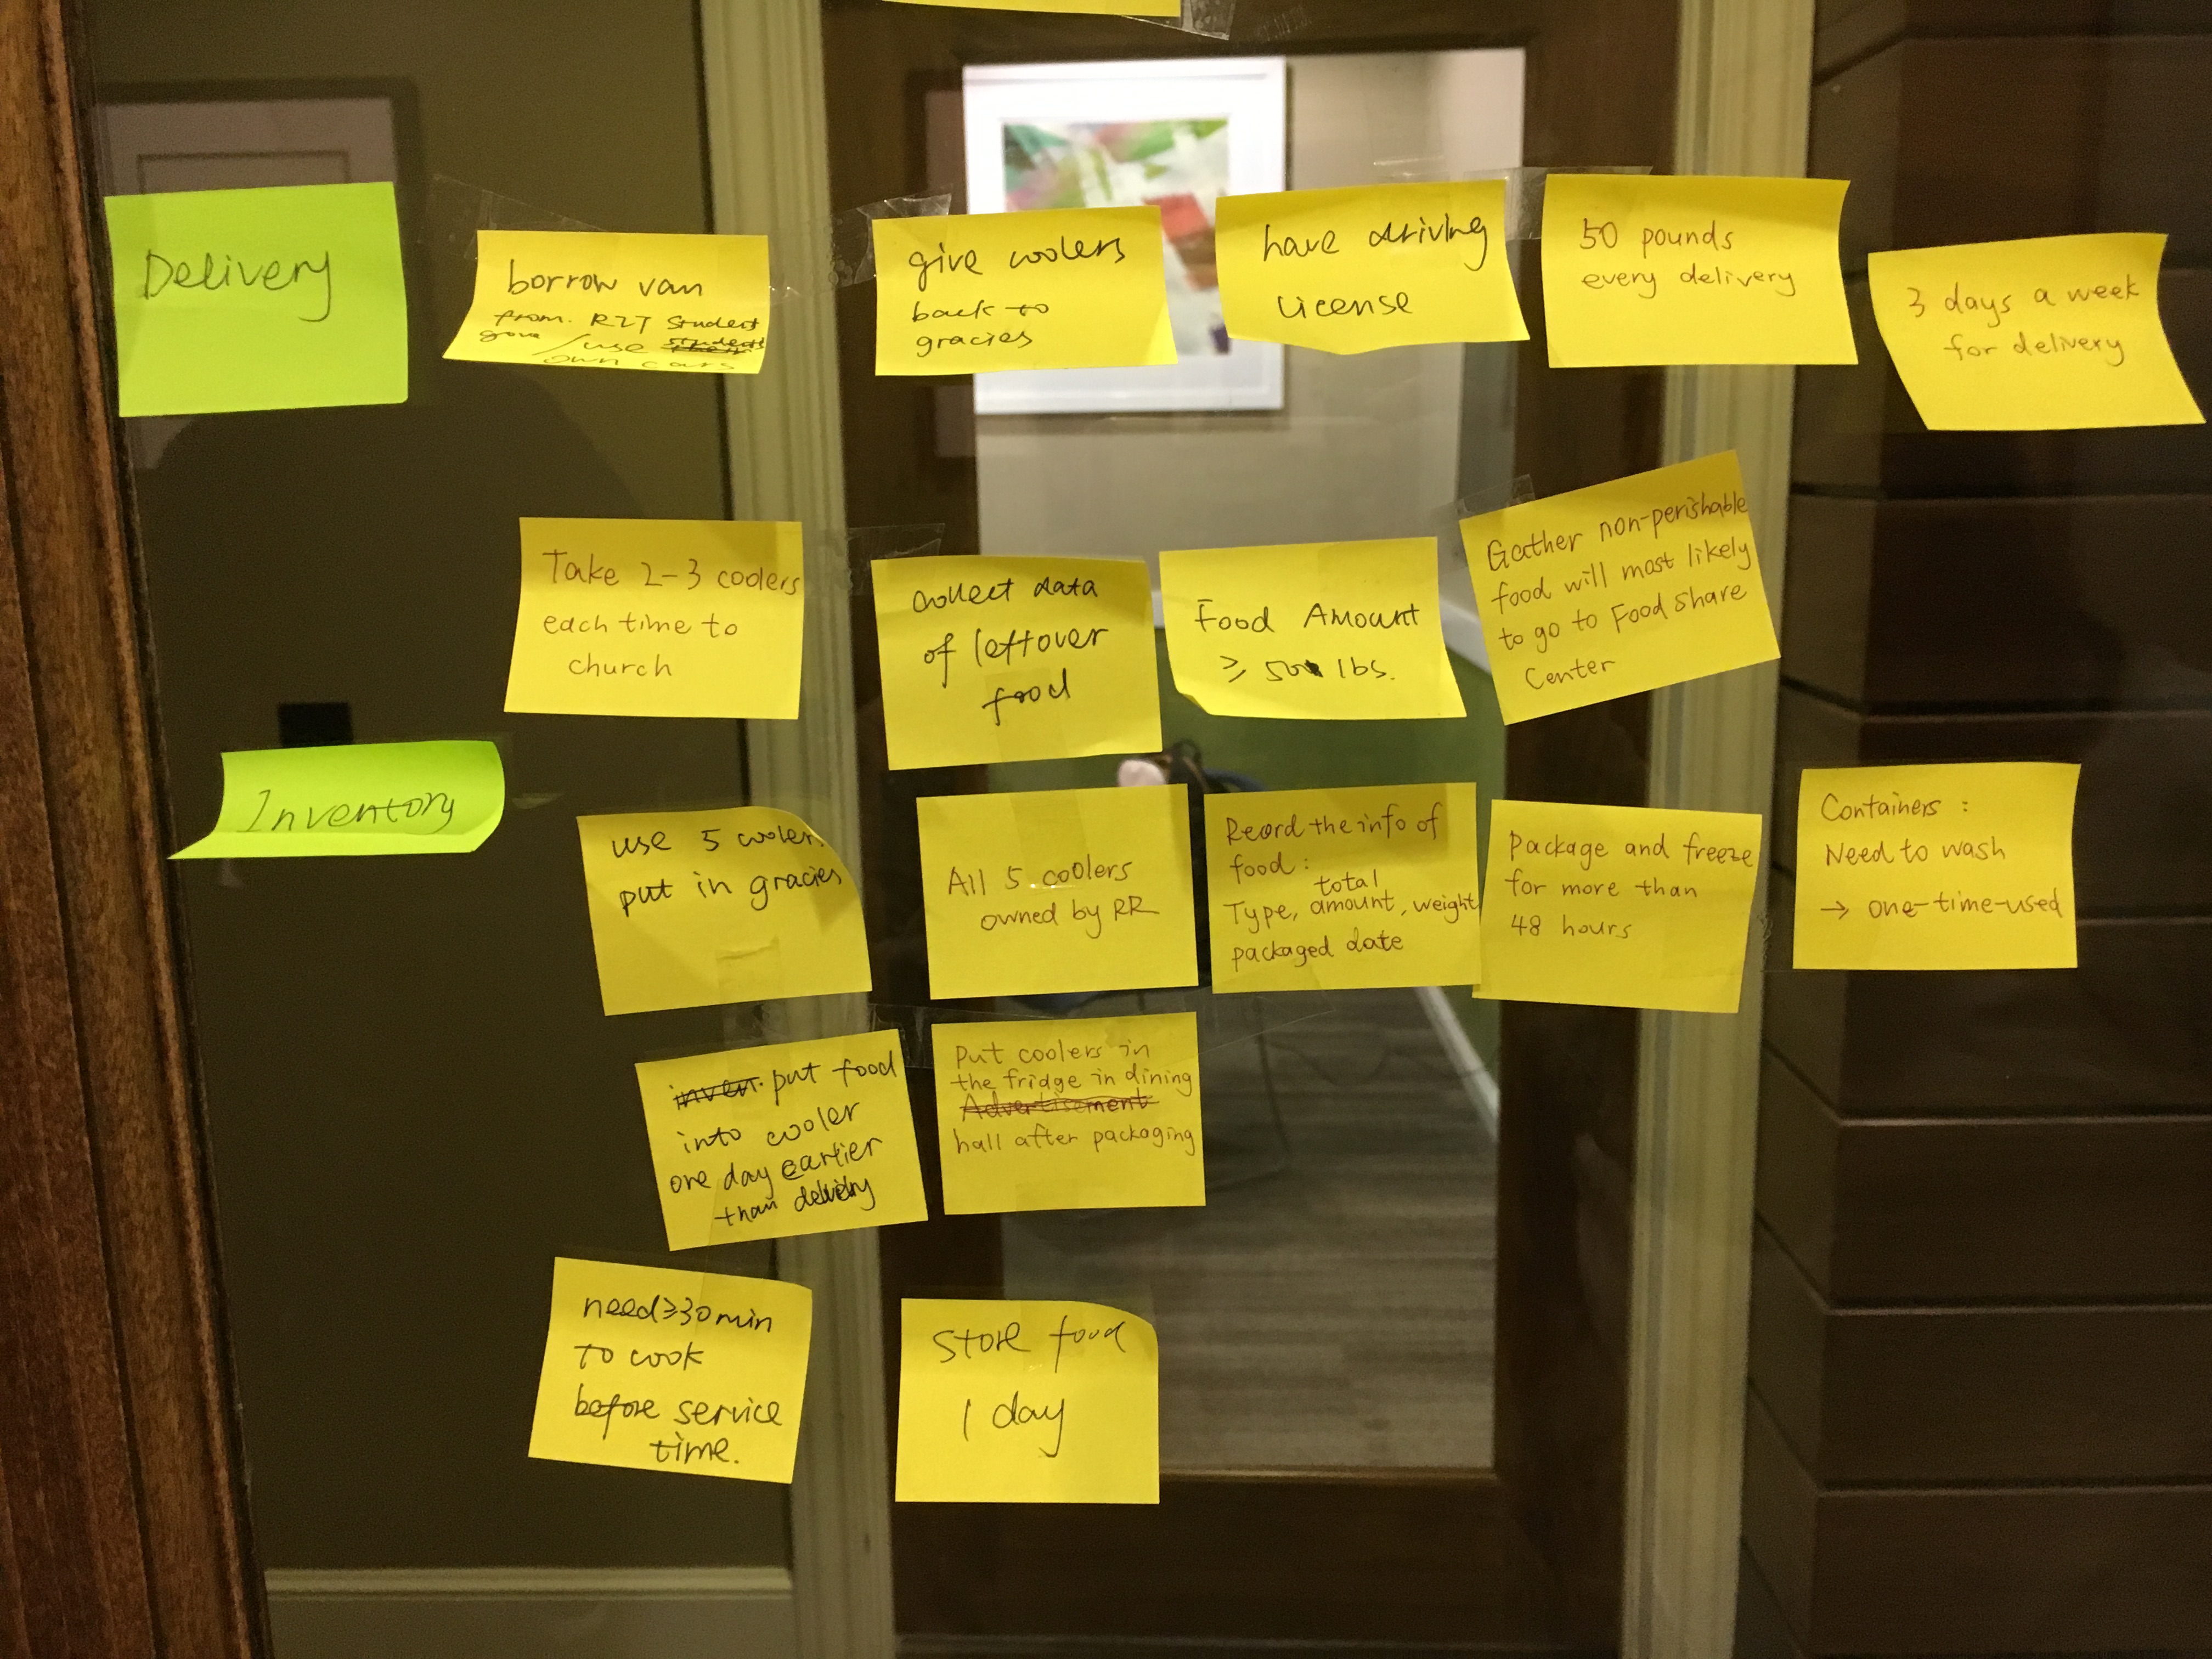 Delivery
borrow van
from RIT Student
gove / use students
own cars
give coolers
back to
gracies
have driving
license
50 pounds
every delivery
3 days a week
for delivery
Take 2-3 coolers
each time to
church
collect data
of leftover
food
Food Amount
≥ 50 lbs.
Gather non-perishable
food will most likely
to go to Food Share
Center
Inventory
use 5 coolers
put in gracies
All 5 coolers
owned by RR
Record the info of
food:
total
Type, amount, weight
packaged date
Package and freeze
for more than
48 hours
Containers:
Need to wash
→ one-time-used
inven. put food
into cooler
one day earlier
than delivery
Put coolers in
the fridge in dining
Advertisement
hall after packaging
need ≥30min
to cook
before service
time.
Store food
1 day